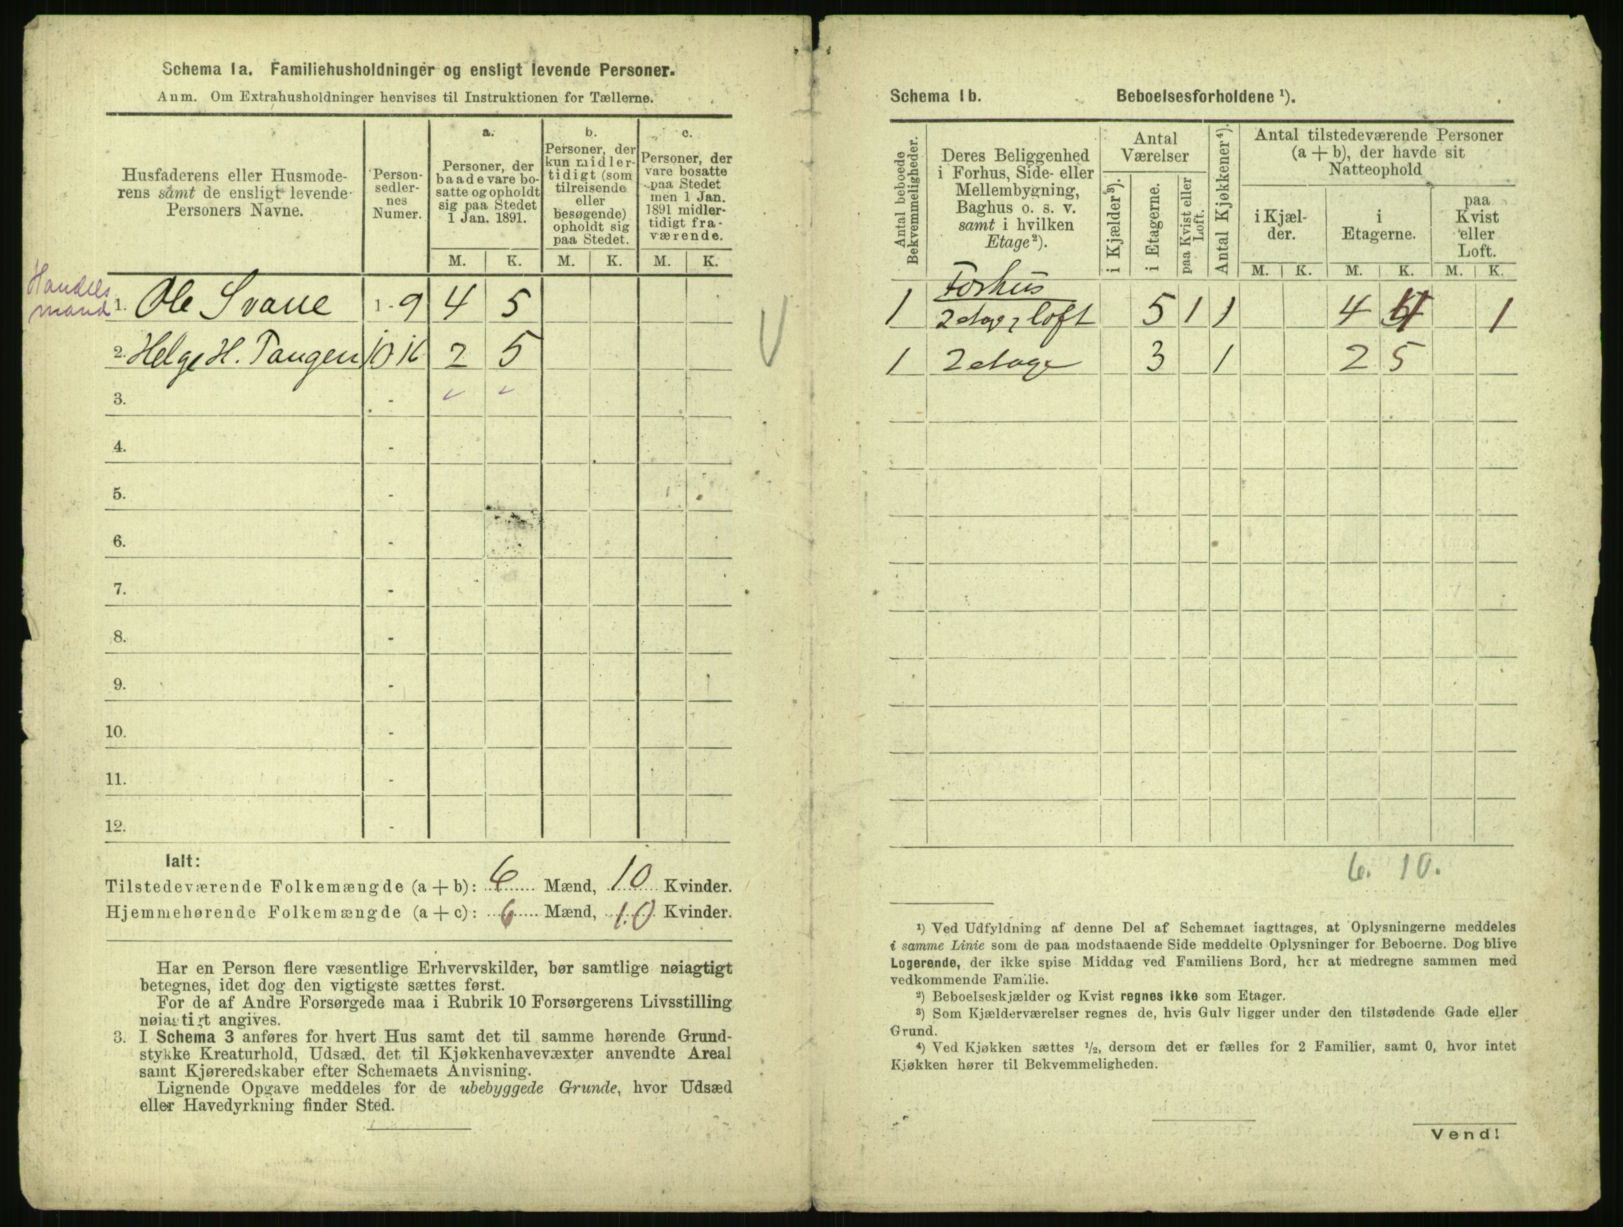 Schema 1a. Familiehusholdninger og ensligt levende Personer.
Anm. Om Extrahusholdninger henvises til Instruktionen for Tællerne.
Husfaderens eller Husmode-
rens samt de ensligt levende
Personers Navne.
Person-
sedler-
nes
Numer.
a.
Personer, der
baade vare bo-
satte og opholdt
sig paa Stedet
1 Jan. 1891.
b.
Personer, der
kun midler-
tidigt (som
tilreisende
eller
besøgende)
opholdt sig
paa Stedet.
c.
Personer, der
vare bosatte
paa Stedet
men 1 Jan.
1891 midler-
tidigt fra-
værende.
M. K. M. K. M. K.
Handels
mand
1. Ole Svane 1-9 4 5
2. Helge H. Tangen 10 16 2 5
3. -
4. -
5. -
6. -
7. -
8. -
9. -
10. -
11. -
12. -
Ialt:
Tilstedeværende Folkemængde (a + b): 6 Mænd, 10 Kvinder.
Hjemmehørende Folkemængde (a + c): 6 Mænd, 10 Kvinder.
Har en Person flere væsentlige Erhvervskilder, bør samtlige nøiagtigt
betegnes, idet dog den vigtigste sættes først.
For de af Andre Forsørgede maa i Rubrik 10 Forsørgerens Livsstilling
nøiagtigt angives.
3. I Schema 3 anføres for hvert Hus samt det til samme hørende Grund-
stykke Kreaturhold, Udsæd, det til Kjøkkenhavevæxter anvendte Areal
samt Kjøreredskaber efter Schemaets Anvisning.
Lignende Opgave meddeles for de ubebyggede Grunde, hvor Udsæd
eller Havedyrkning finder Sted.
Schema 1b. Beboelsesforholdene ¹).
Antal beboede
Bekvemmeligheder.
Deres Beliggenhed
i Forhus, Side- eller
Mellembygning,
Baghus o. s. v.
samt i hvilken
Etage²).
Antal
Værelser
i Kjælder³).
i Etagerne.
paa Kvist eller
Loft.
Antal Kjøkkener⁴).
Antal tilstedeværende Personer
(a + b), der havde sit
Natteophold
i Kjæl-
der.
i
Etagerne.
paa
Kvist
eller
Loft.
M. K. M. K. M. K.
Forhus
1 2 etag, loft 5 1 1 4 4 1
1 2 etage 3 1 2 5
6. 10.
¹) Ved Udfyldning af denne Del af Schemaet iagttages, at Oplysningerne meddeles
i samme Linie som de paa modstaaende Side meddelte Oplysninger for Beboerne. Dog blive
Logerende, der ikke spise Middag ved Familiens Bord, her at medregne sammen med
vedkommende Familie.
²) Beboelseskjælder og Kvist regnes ikke som Etager.
³) Som Kjælderværelser regnes de, hvis Gulv ligger under den tilstødende Gade eller
Grund.
⁴) Ved Kjøkken sættes ½, dersom det er fælles for 2 Familier, samt 0, hvor intet
Kjøkken hører til Bekvemmeligheden.
Vend!